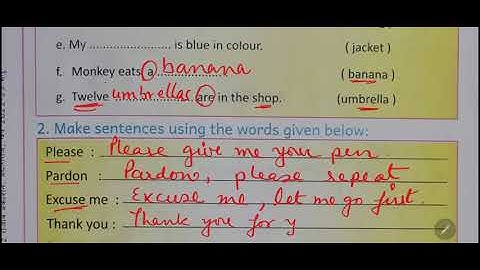 e. My ........................ is blue in colour. ( jacket )
f. Monkey eats a banana ( banana )
g. Twelve umbrellas are in the shop. (umbrella )
2. Make sentences using the words given below:
Please : Please give me your pen.
Pardon : Pardon, please repeat
Excuse me : Excuse me, let me go first.
Thank you : Thank you for y